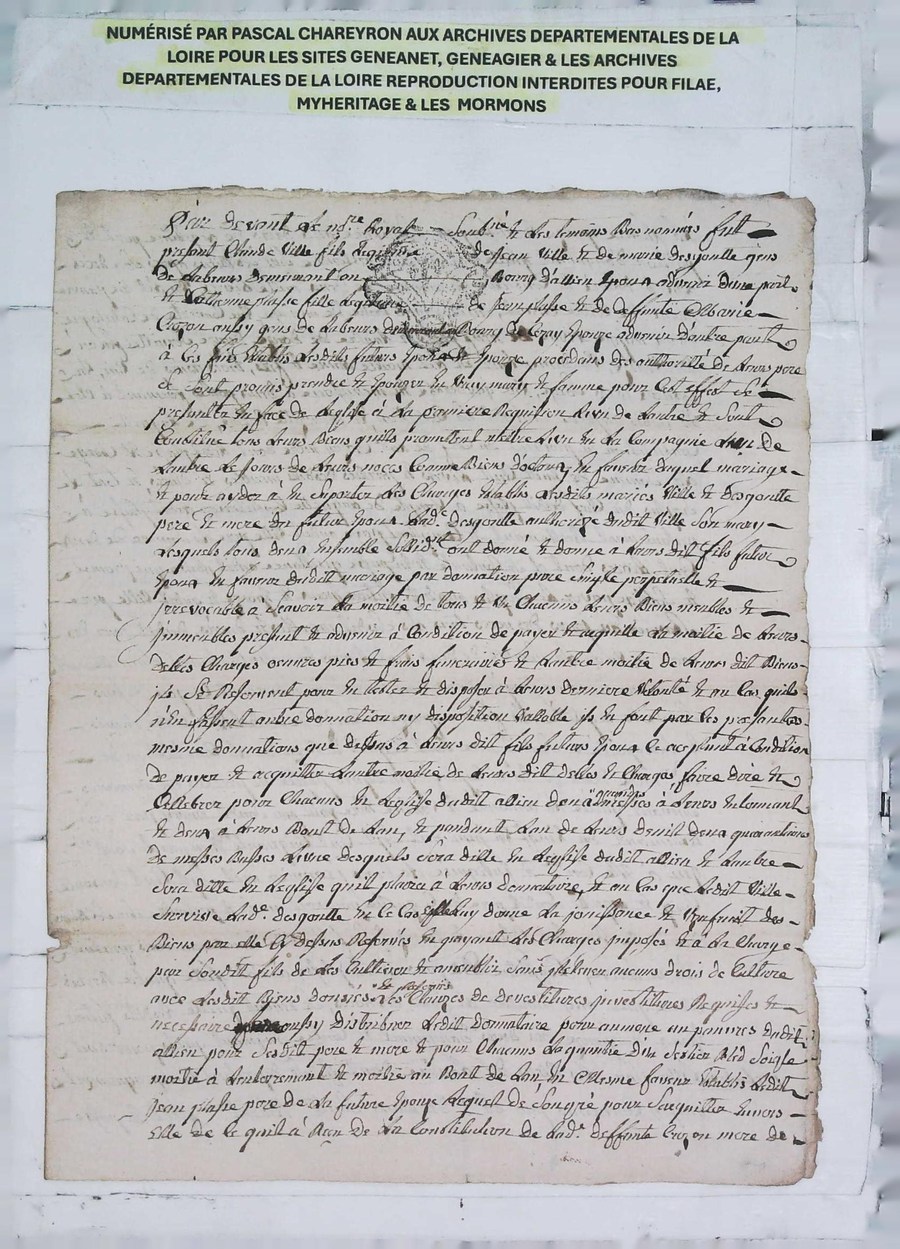 NUMÉRISÉ PAR PASCAL CHAREYRON AUX ARCHIVES DEPARTEMENTALES DE LA
LOIRE POUR LES SITES GENEANET, GENEAGIER & LES ARCHIVES
DEPARTEMENTALES DE LA LOIRE REPRODUCTION INTERDITES POUR FILAE,
MYHERITAGE & LES MORMONS
Par devant le nore Royal Soubne & les temoins Bas nommés fut
present Claude Ville fils legitime de Jean Ville & de marie desgoutte gens
de labeurs demeurant au Bourg d'allieu Epoux advenir d'une part
& plasse fille legitime de Jean plasse & de deffunte Marie
Crozon aussy gens de labeurs Bourg de Cezay Epouze advenir d'autre part
à ces fins Etablis lesdits futurs Epoux & Epouze procedans de l'authorité de leurs pere
se sont promis prendre & Epouzer en vray mary & famme pour cet effet se
presenter en face de l'eglise à la premiere Requisition l'un de l'autre & sont
Constitué tous leurs Biens quils promettent mettre l'un en la Compagnie de
l'autre le jours de leurs noces Comme Biens en faveur duquel mariage
& pour ayder à en suporter les Charges Etablis lesdits mariés Ville & desgoutte
pere & mere du futur Epoux lade desgoutte authorizé dudit Ville son mary
lesquels tous deux Ensemble ont donné & donne à leurs dit fils futur
Epoux en faveur dudit mariage par donnation pure simple perpetuelle &
irrevocable à Scavoir la moitié de tous & Chacuns leurs Biens meubles &
immeubles present & advenir à Condition de payer & acquitter la moitié de leurs
debtes Charges oeuvres pies & frais funeraires & l'autre moitié de leurs dit Biens
ils se Reservent pour en tester & disposer à leurs derniere volonté & au Cas quils
n'en fassent autre donnation ny disposition vallable ils en font par ces presentes
mesme donnations que dessus à leurs dit fils futurs Epoux Ce aceptant à Condition
de payer & acquitter l'autre moitié de leurs dit debtes & Charges faire dire &
Celebrer pour Chacuns en l'eglise dudit allieu deux grandes messes à leurs
& deux à leurs Bout de l'an, & pendant l'an de leurs deuil deux quarantaines
de messes Basses l'une desquels sera ditte en l'eglise dudit allieu & l'autre
sera ditte en l'eglise quil plaira à leurs donnataire, & au cas que ledit Ville
survive lade desgoutte en ce Cas elle luy donne la jouissance & usufruit des
Biens par elle Cy dessus Reservés en payant les Charges imposés & à la Charge
par sondit fils de les Cultiver & ensemblir sans prelever aucuns drois de Culture
avec lesdit Biens donnés & reservés les Clauzes de devestitures investitures Requises &
necessaire aussy distribuer ledit donnataire pour aumone au pauvres dudit
allieu pour sesdit pere & mere & pour Chacuns la quantité d'un Sestier Bled Seigle
moitié à l'enterrement & moitié au Bout de l'an, en Mesme faveur Etablis ledit
Jean plasse pere de la future Epouze lequel de son gré pour s'acquitter Envers
elle de ce quil à Recu de la Constitution de lade deffunte Crozon mere de